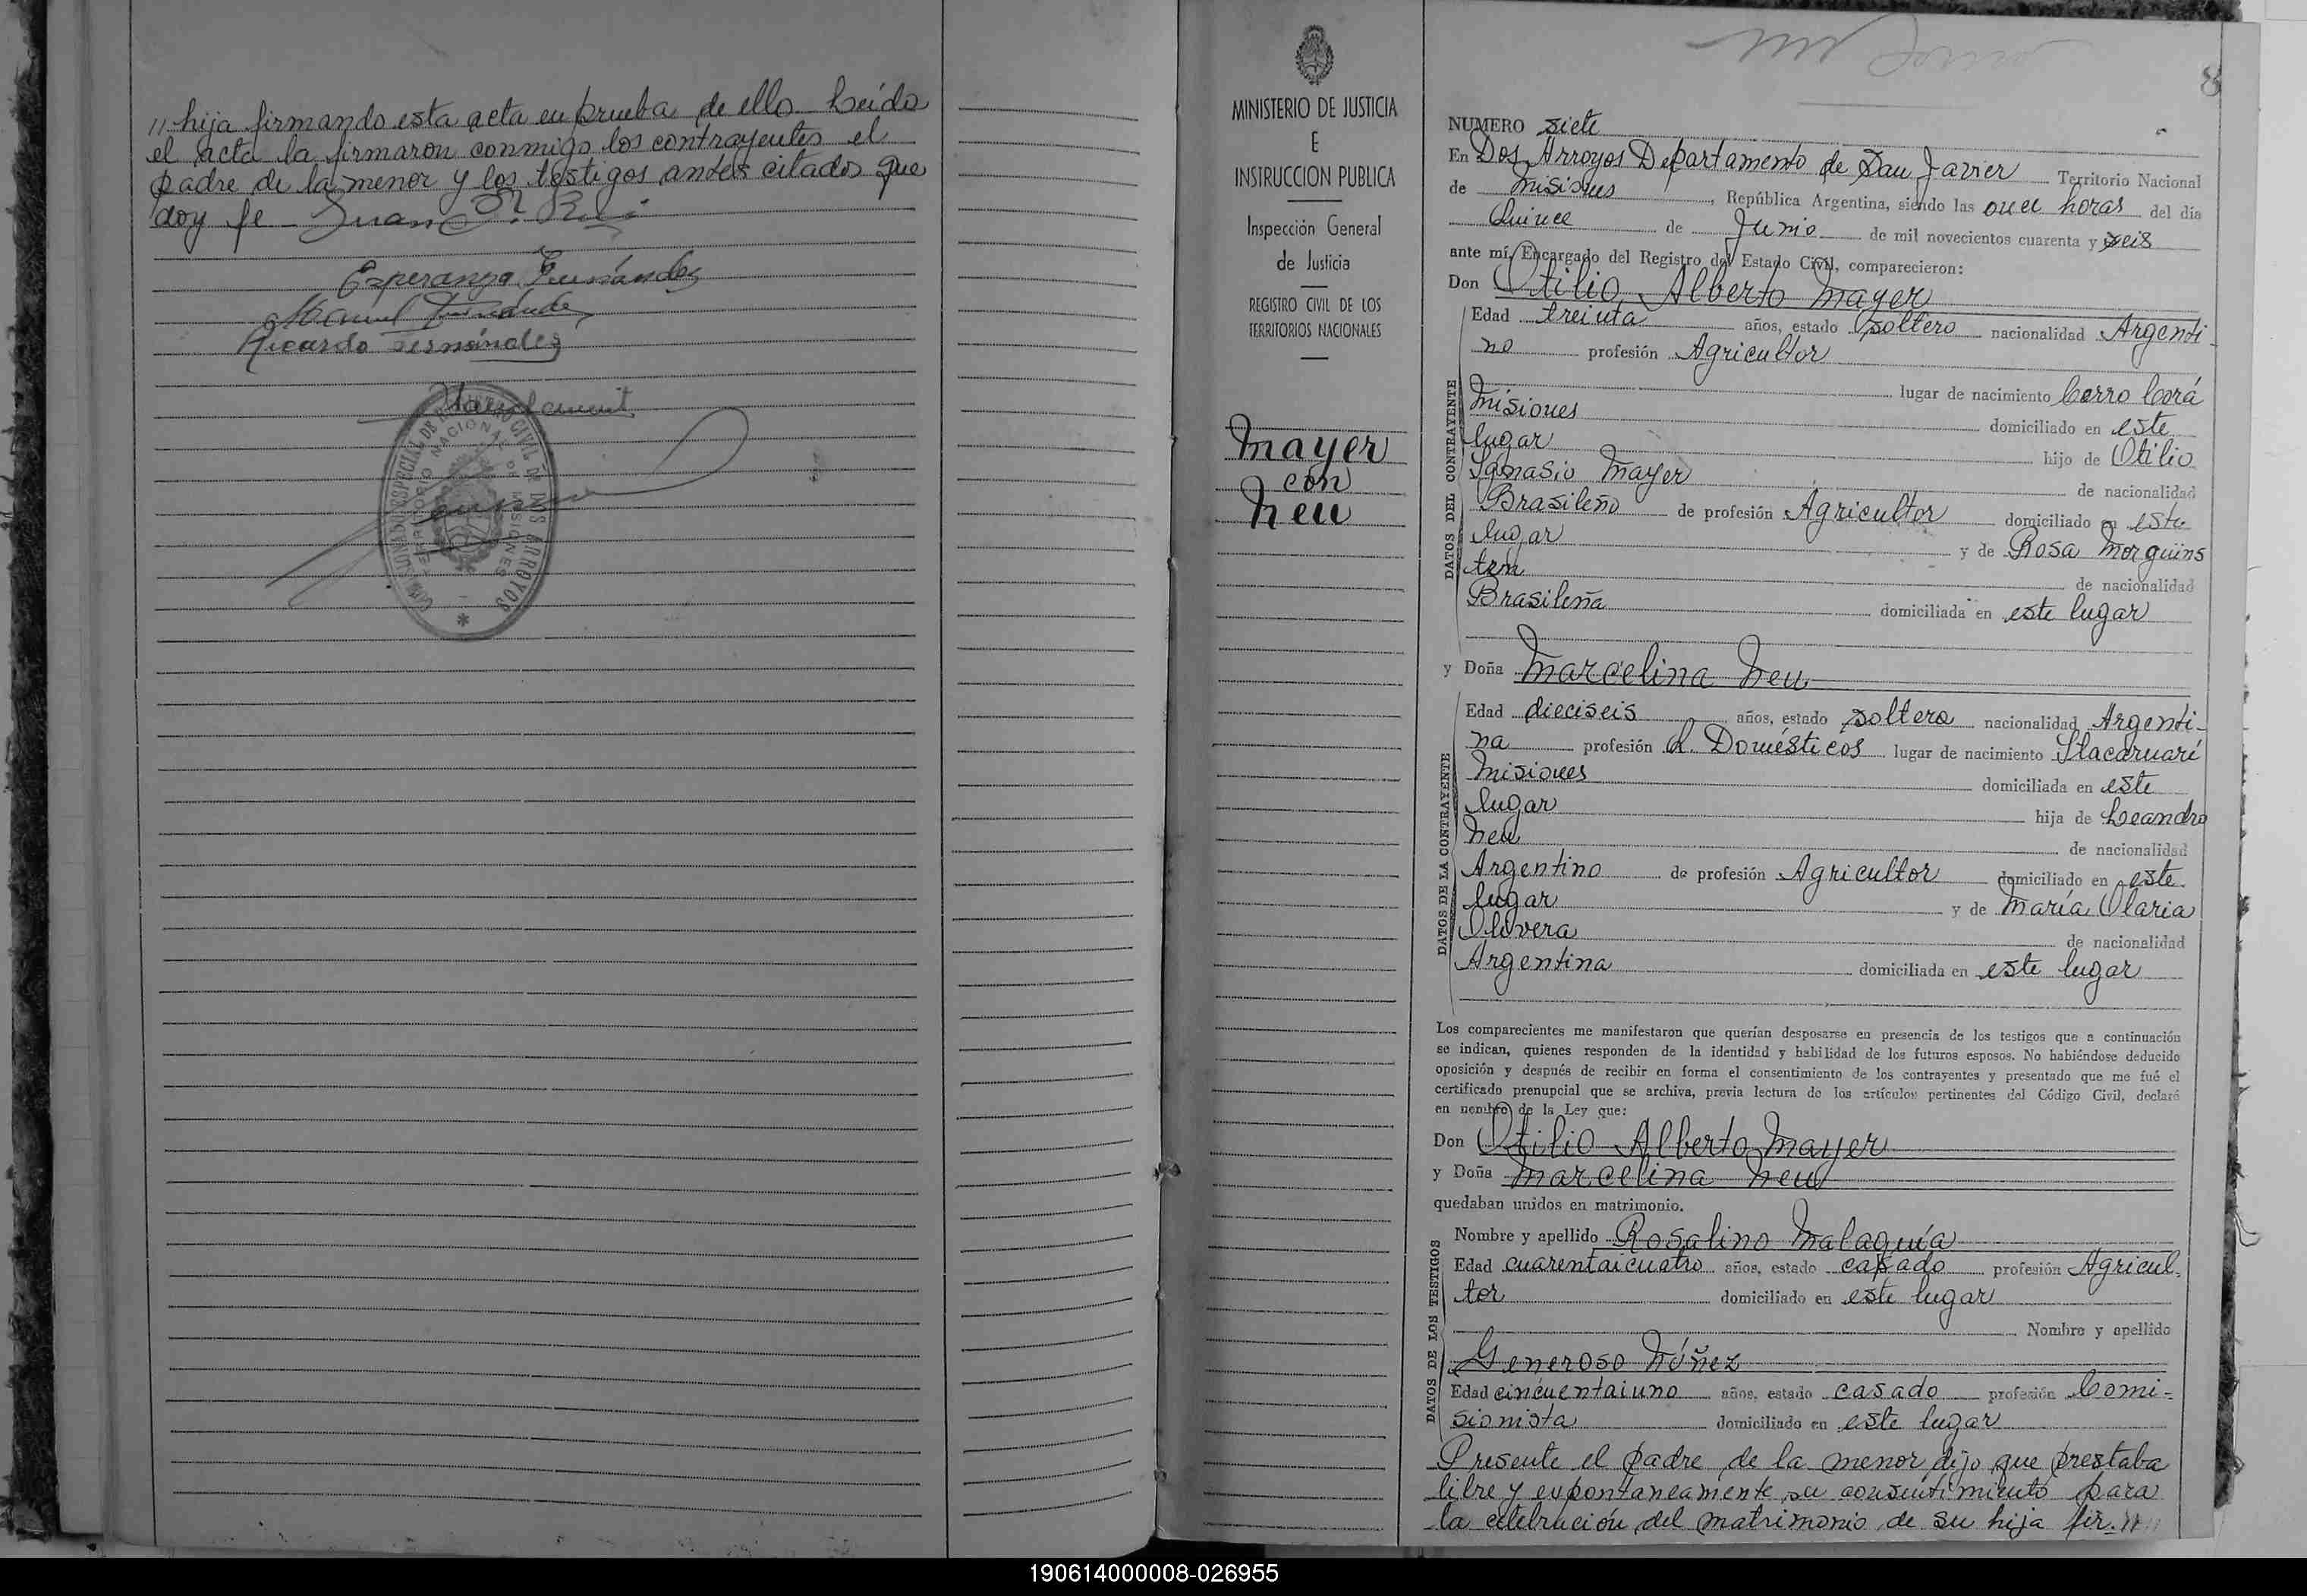 // hija firmando esta acta en prueba de ello. Leída
el acta la firmaron conmigo los contrayentes el
padre de la menor y los testigos antes citados que
doy fe
Esperanza Fernández
Manuel Fernández
Ricardo Fernández
MINISTERIO DE JUSTICIA
E
INSTRUCCION PUBLICA
Inspección General
de Justicia
REGISTRO CIVIL DE LOS
TERRITORIOS NACIONALES
Mayer
con
Neu
8
NUMERO siete
En Dos Arroyos Departamento de San Javier Territorio Nacional
de Misiones, República Argentina, siendo las once horas del día
Quince de Junio de mil novecientos cuarenta y seis
ante mí, Encargado del Registro del Estado Civil, comparecieron:
Don Otilio Alberto Mayer
Edad treinta años, estado soltero nacionalidad Argenti-
no profesión Agricultor
lugar de nacimiento Cerro Corá
Misiones domiciliado en este
lugar hijo de Otilio
Ignasio Mayer de nacionalidad
Brasileño de profesión Agricultor domiciliado en este
lugar y de Rosa Morguins
tern de nacionalidad
Brasileña domiciliada en este lugar
y Doña Marcelina Neu
Edad dieciseis años, estado soltera nacionalidad Argenti-
na profesión Q. Domésticos lugar de nacimiento Itacaruaré
Misiones domiciliada en este
lugar hija de Leandro
Neu de nacionalidad
Argentino de profesión Agricultor domiciliado en este
lugar y de María Olaria
Olivera de nacionalidad
Argentina domiciliada en este lugar
Los comparecientes me manifestaron que querían desposarse en presencia de los testigos que a continuación
se indican, quienes responden de la identidad y habilidad de los futuros esposos. No habiéndose deducido
oposición y después de recibir en forma el consentimiento de los contrayentes y presentado que me fué el
certificado prenupcial que se archiva, previa lectura de los artículos pertinentes del Código Civil, declaré
en nombre de la Ley que:
Don Otilio Alberto Mayer
y Doña Marcelina Neu
quedaban unidos en matrimonio.
Nombre y apellido Rosalino Malaquía
Edad cuarentaicuatro años, estado casado profesión Agricul-
tor domiciliado en este lugar
Nombre y apellido
Generoso Núñez
Edad cincuentaiuno años, estado casado profesión Comi-
sionista domiciliado en este lugar
DATOS DEL CONTRAYENTE
DATOS DE LA CONTRAYENTE
DATOS DE LOS TESTIGOS
Presente el padre de la menor dijo que prestaba
libre y expontaneamente su consentimiento para
la celebración del matrimonio de su hija fir. //
190614000008-026955